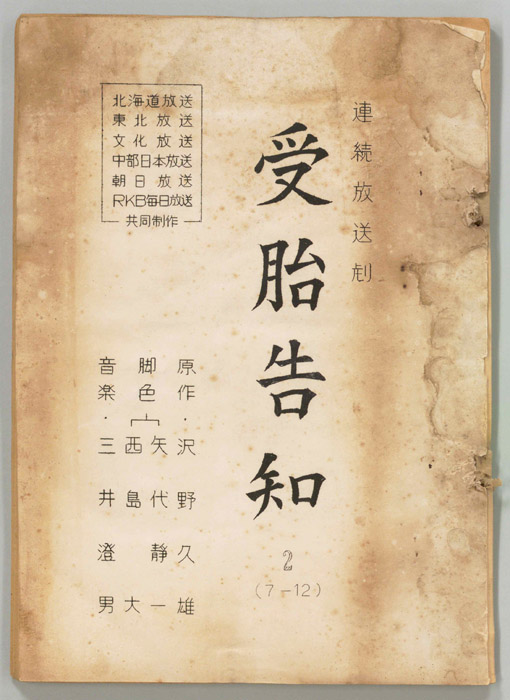 連続放送劇
受胎告知
2
(7-12)
北海道放送
東北放送
文化放送
中部日本放送
朝日放送
RKB毎日放送
共同制作
原作・沢野久雄
脚色 矢代静一
西島大
音楽・三井澄男